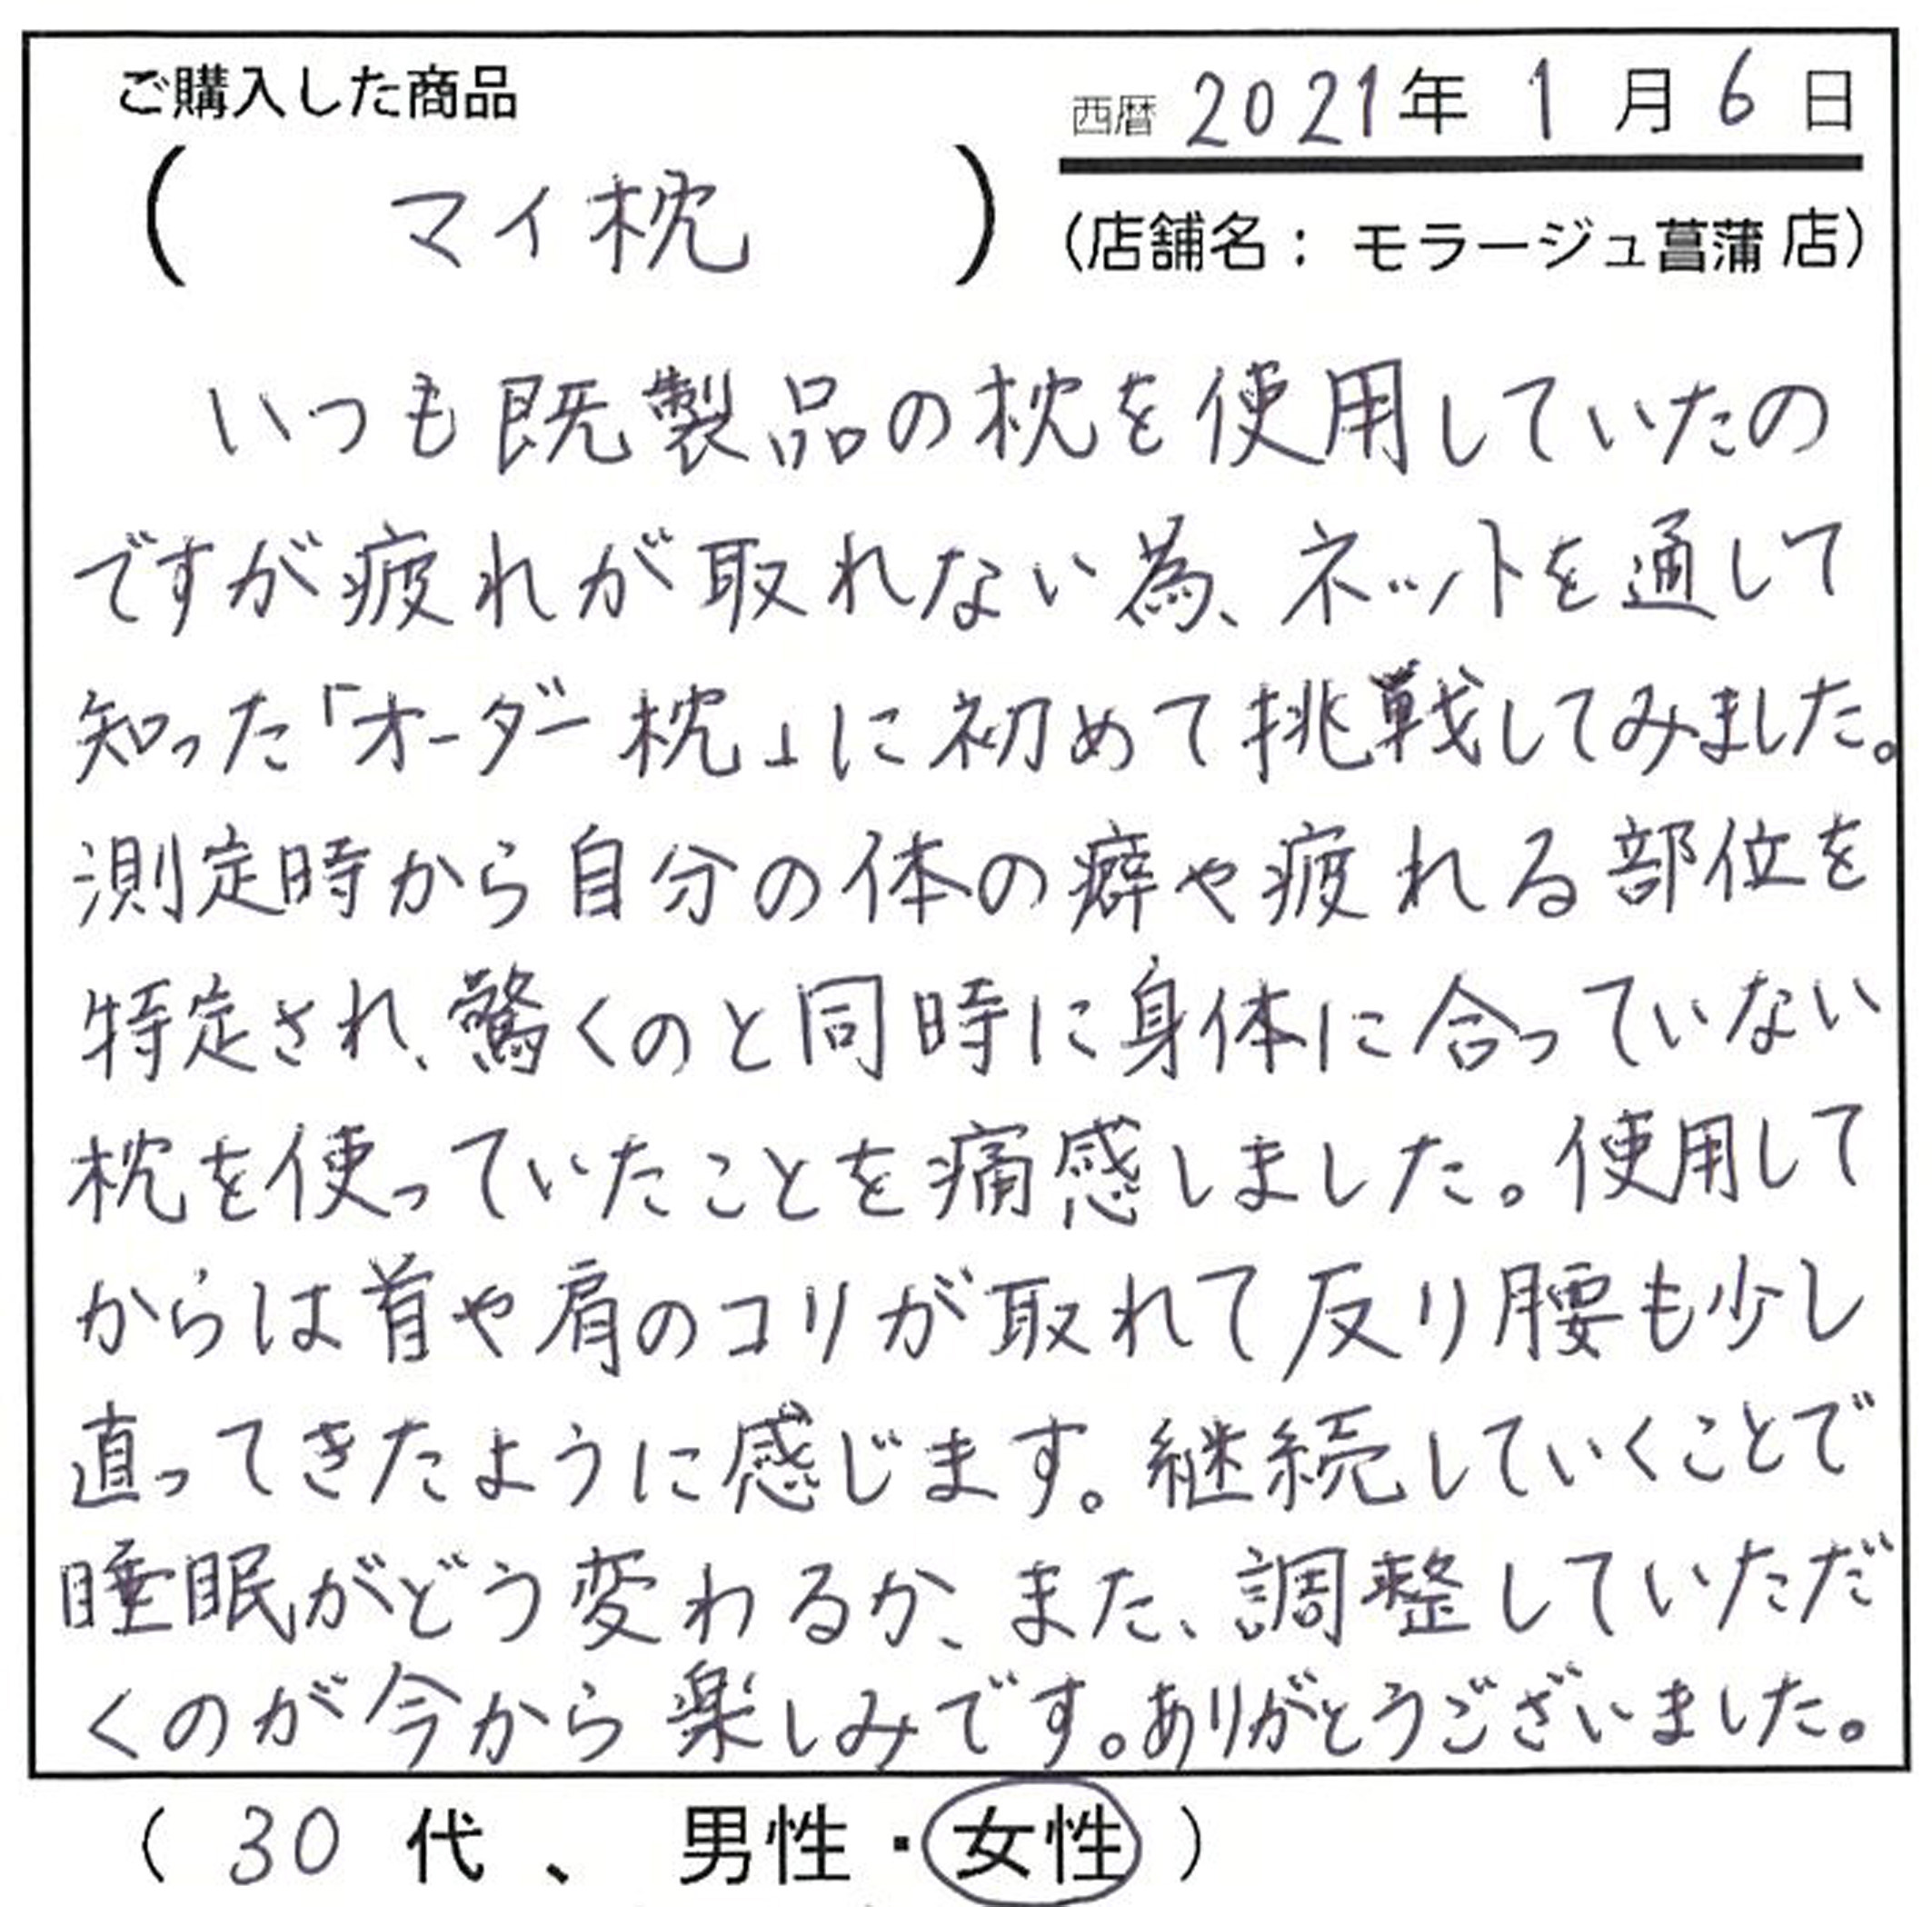 ご購入した商品
西暦 2021年 1月 6日
( マイ枕 )
(店舗名: モラージュ菖蒲 店)
いつも既製品の枕を使用していたの
ですが疲れが取れない為、ネットを通して
知った「オーダー枕」に初めて挑戦してみました。
測定時から自分の体の癖や疲れる部位を
特定され、驚くのと同時に身体に合っていない
枕を使っていたことを痛感しました。使用して
からは首や肩のコリが取れて反り腰も少し
直ってきたように感じます。継続していくことで
睡眠がどう変わるか、また、調整していただ
くのが今から楽しみです。ありがとうございました。
( 30 代 、 男性・女性 )